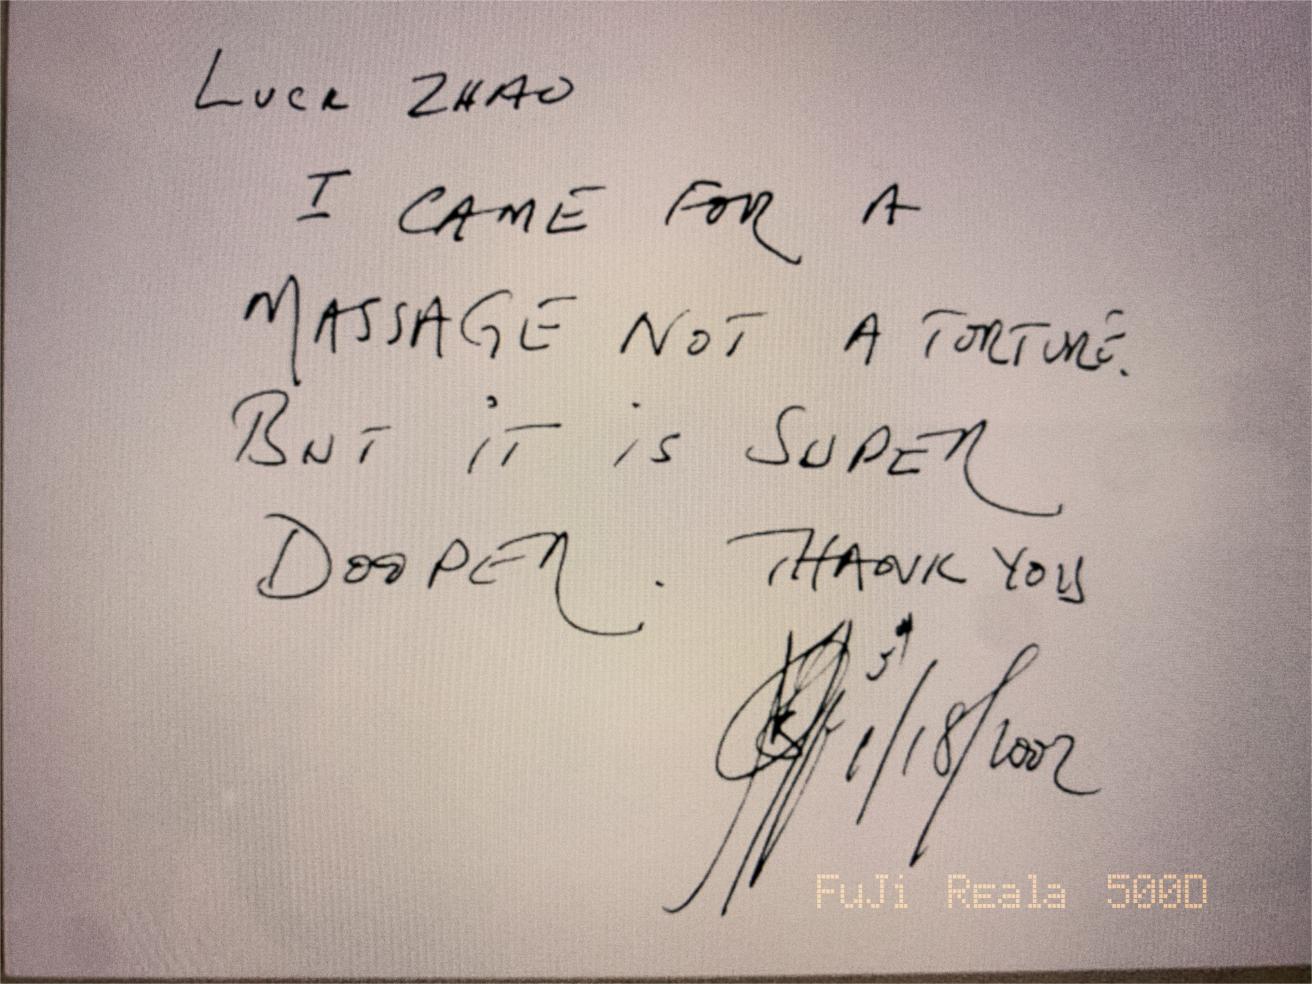 ZHAO
I CAME FOR A
MASSAGE NOT A TORTURE.
BUT iT is SUPER
DOOPER. THANK YOU
1/18/2002
FuJi Reala 500D